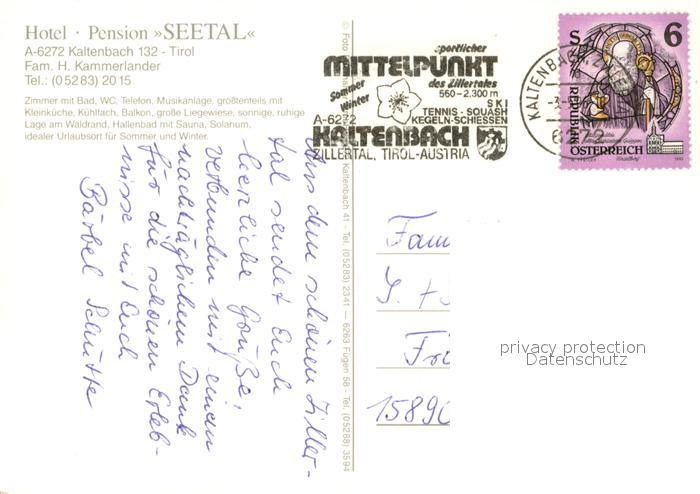 Hotel · Pension »SEETAL«
A-6272 Kaltenbach 132 - Tirol
Fam. H. Kammerlander
Tel.: (0 52 83) 20 15
Zimmer mit Bad, WC, Telefon, Musikanlage, größtenteils mit
Kleinküche, Kühlfach, Balkon, große Liegewiese, sonnige, ruhige
Lage am Waldrand, Hallenbad mit Sauna, Solarium,
idealer Urlaubsort für Sommer und Winter.
Aus dem schönen Ziller-
tal sendet Euch
herzliche Grüße,
verbunden mit einem
nachträglichen Dank
für die schönen Erleb-
nisse mit Euch
Bärbel Schütte
© Foto
Kaltenbach 41 - Tel. (05283) 2341 — 6263 Fügen 58 - Tel. (05288) 3594
sportlicher
MITTELPUNKT
des Zillertales
Sommer
Winter
560-2.300 m
SKI
TENNIS-SQUASH
KEGELN-SCHIESSEN
A-6272
KALTENBACH
ZILLERTAL, TIROL-AUSTRIA
KALTENBACH
S 6
REPUBLIK
ÖSTERREICH
Fam
Fri
15890
privacy protection
Datenschutz